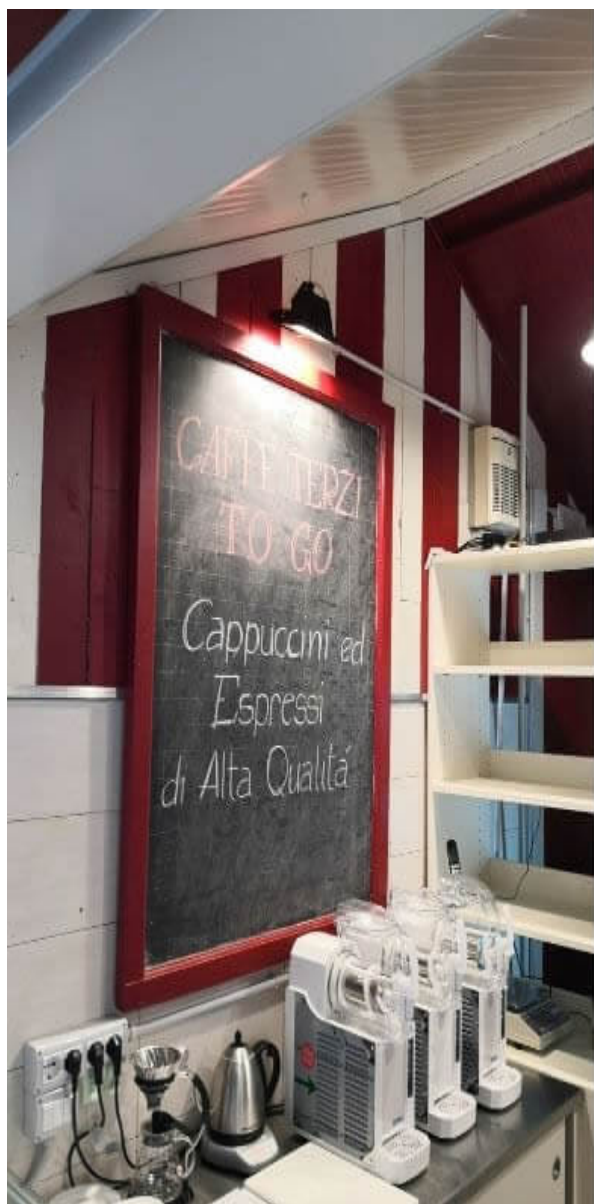 CAFFE TERZI
TO GO
Cappuccini ed
Espressi
di Alta Qualitá